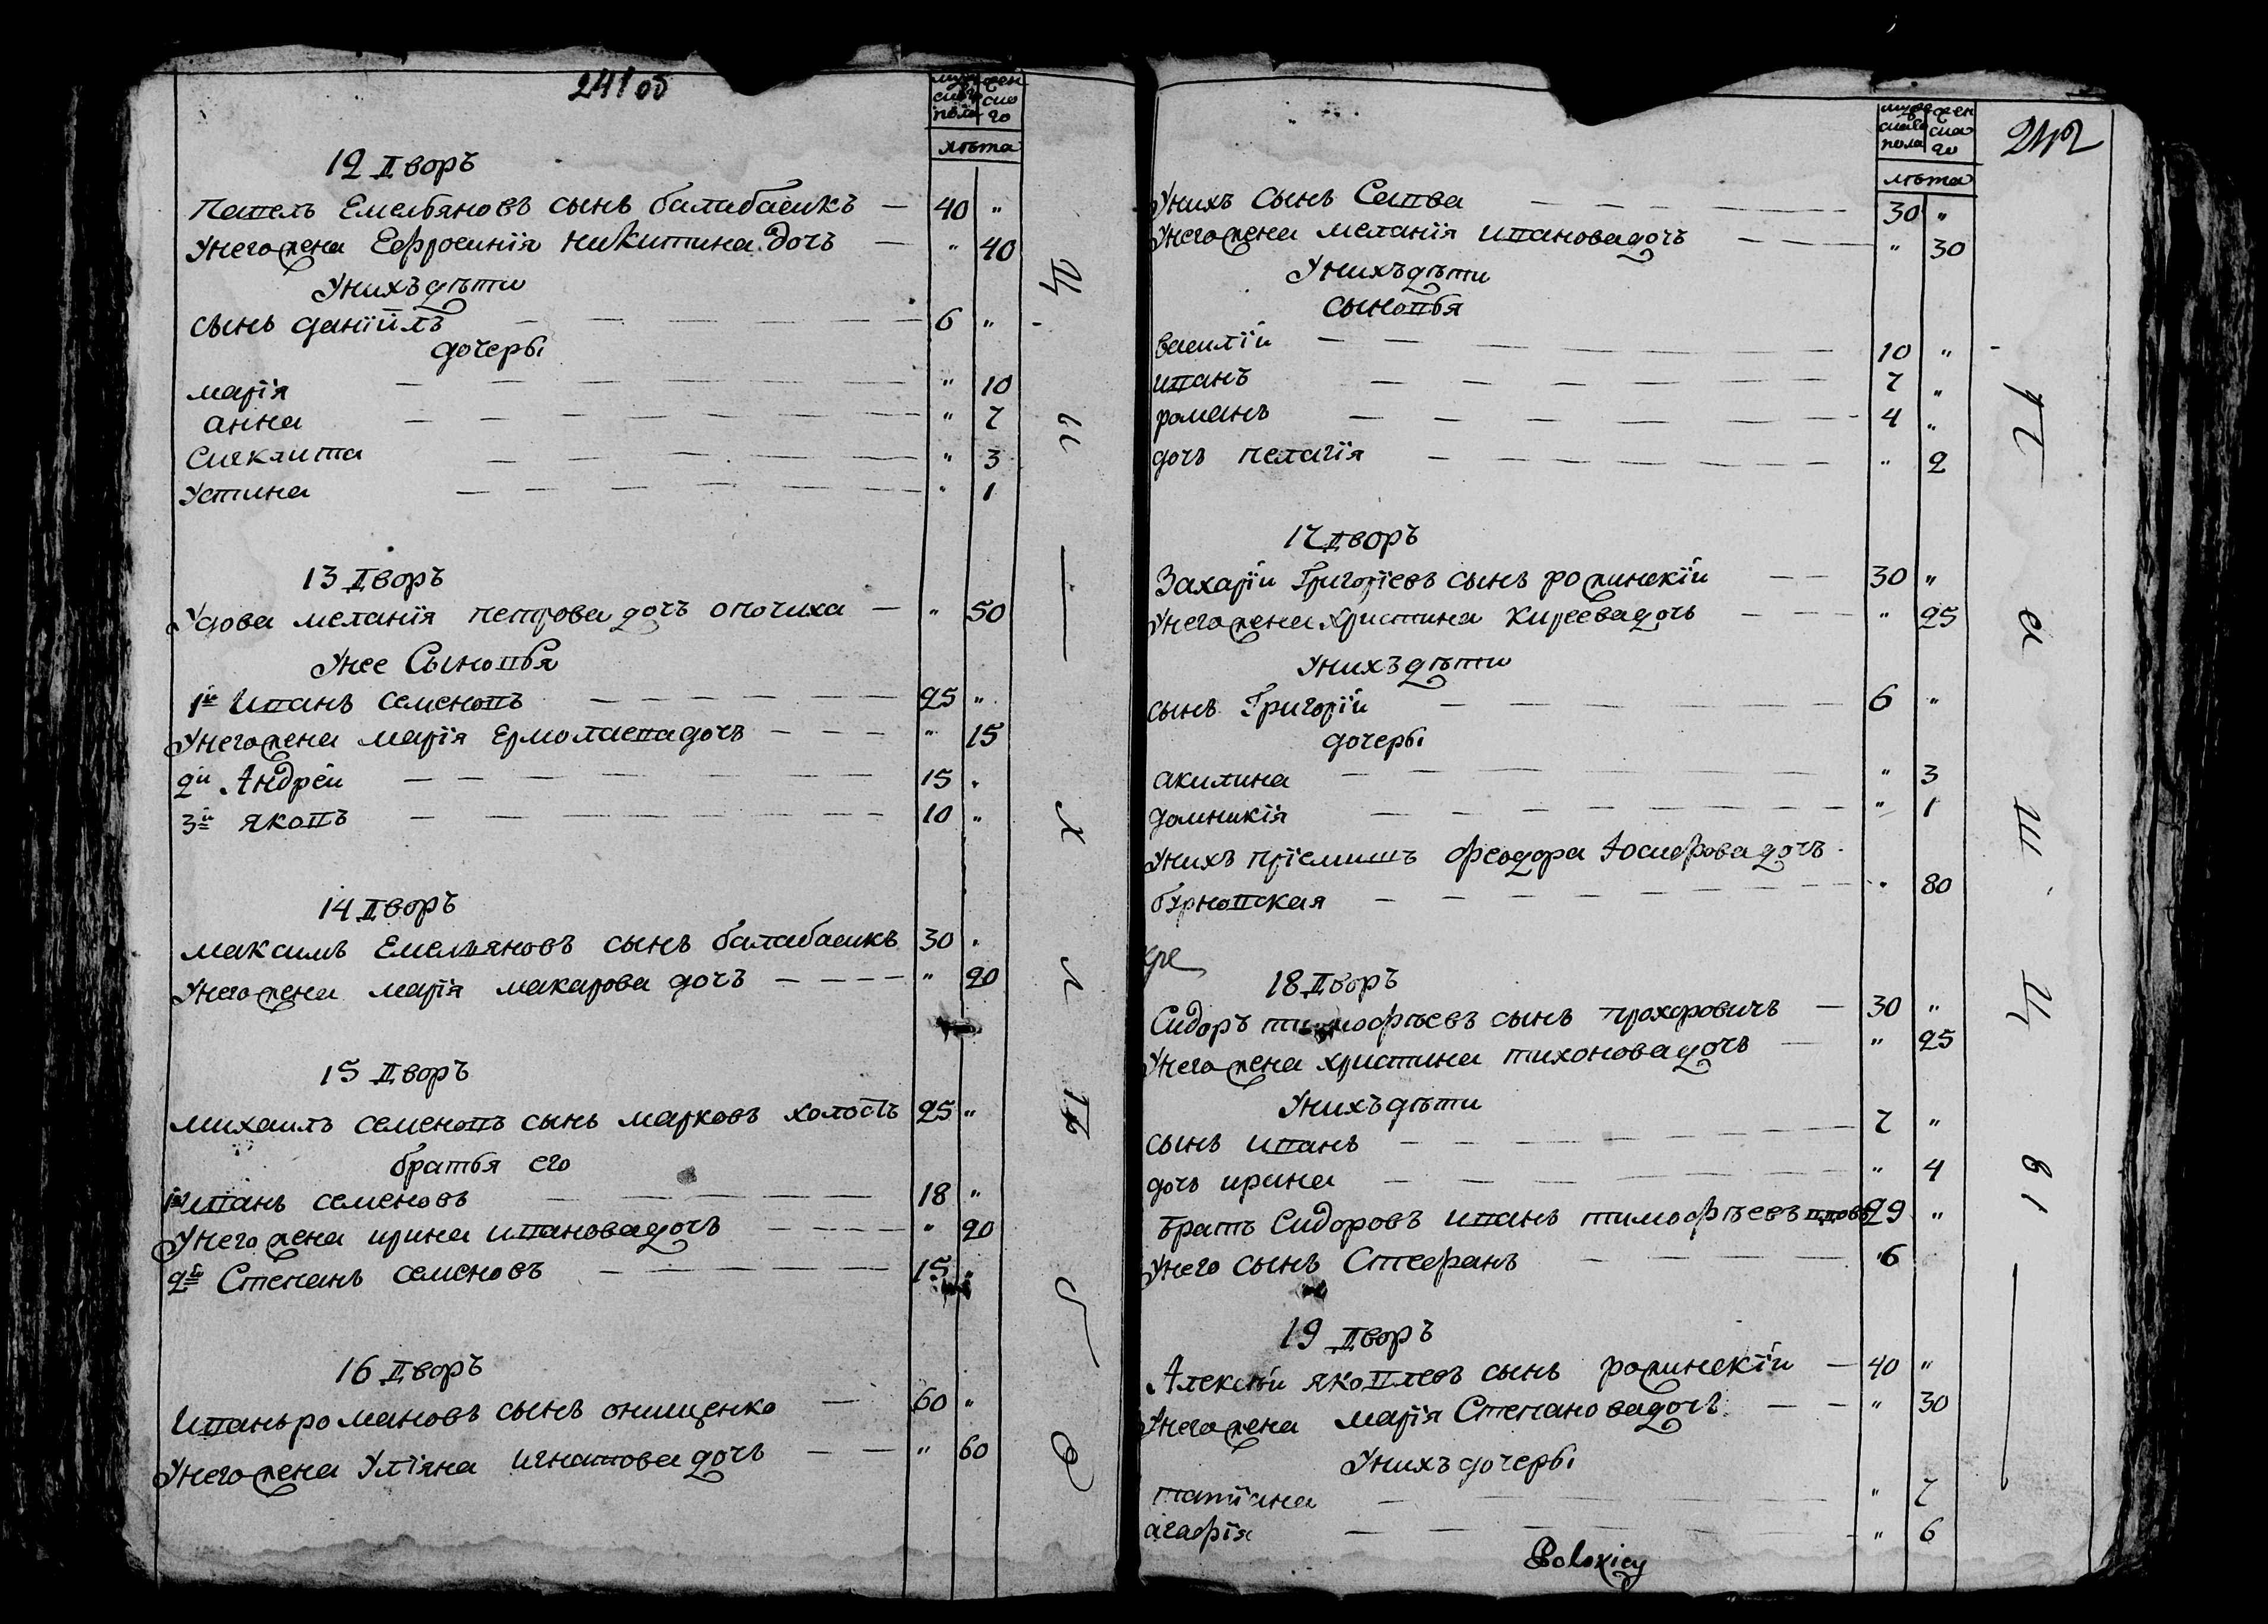 241 об
муж ска пола | жен ска го
лѣта
12 Дворъ
Павелъ Емельяновъ сынъ балабасикъ — 40 "
Унего жена Еѳросинїя никитина дочъ — " 40
Унихъ дѣти
сынъ данїилъ — 6 "
дочеры
марїя — " 10
анна — " 7
Сикклита — " 3
Устина — " 1
13 Дворъ
Удова меланїя петрова дочъ опочиха — " 50
Унее Сыновья
1й Иванъ семеновъ — 25 "
Унего жена марїя Ермолаева дочъ — " 15
2й Андрей — 15 "
3й яковъ — 10 "
14 Дворъ
максимъ Емельяновъ сынъ балабасикъ 30 "
Унего жена марїя макарова дочъ — " 20
15 Дворъ
михаилъ семеновъ сынъ марковъ холостъ 25 "
братья его
1й иванъ семеновъ — 18 "
Унего жена ирина иванова дочъ — " 20
2й Степанъ семеновъ — 15 "
16 Дворъ
Иванъ романовъ сынъ онищенко — 60 "
Унего жена Улїяна игнатова дочъ — " 60
242
муж скаго пола | жен ска го
лѣта
Унихъ сынъ Савва — 30 "
Унего жена меланїя иванова дочъ — " 30
Унихъ дѣти
сыновья
василїй — 10 "
иванъ — 7 "
романъ — 4 "
дочъ пелагїя — " 2
17 Дворъ
Захарїй Григорїевъ сынъ ролинскїй — 30 "
Унего жена христина Киреева дочъ — " 25
Унихъ дѣти
сынъ Григорїй — 6 "
дочеры
акилина — " 3
домникїя — " 1
Унихъ прїемишъ ѳеодора Іосифова дочъ
бурновская — " 80
18 Дворъ
Сидоръ тимофѣевъ сынъ прохоровичъ — 30 "
Унего жена христина тихонова дочъ — " 25
Унихъ дѣти
сынъ иванъ — 7 "
дочъ ирина — " 4
братъ Сидоровъ иванъ тимофѣевъ вдовъ 29 "
Унего сынъ Стефанъ — 6
19 Дворъ
Алексѣй яковлевъ сынъ ролинскїй — 40 "
Унего жена марїя Степанова дочъ — " 30
Унихъ дочеры
татїана — " 7
агафїя — " 6